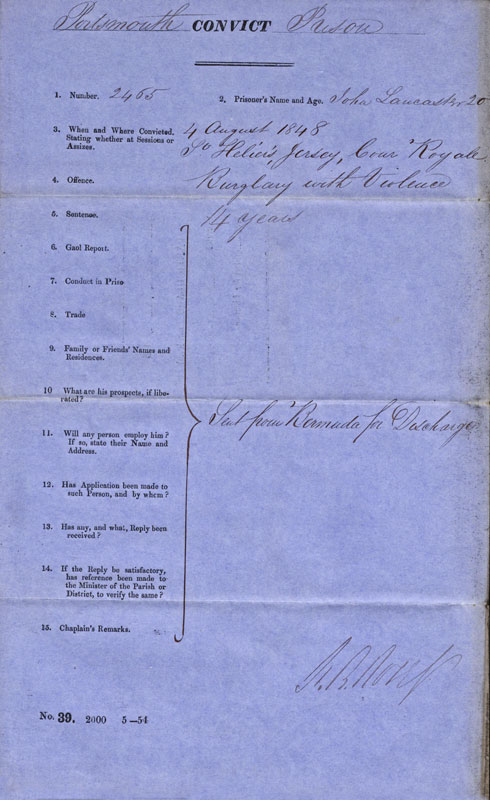 Portsmouth CONVICT Prison
1. Number. 2465
2. Prisoner's Name and Age. John Lancaster 20
3. When and Where Convicted. 4 August 1848
Stating whether at Sessions or St Helier's, Jersey, Cour Royale
Assizes.
4. Offence. Burglary with Violence
5. Sentence. 14 years
6. Gaol Report.
7. Conduct in Priso
8. Trade
9. Family or Friends' Names and
Residences.
10 What are his prospects, if libe-
rated?
Sent from Bermuda for Discharge
11. Will any person employ him?
If so, state their Name and
Address.
12. Has Application been made to
such Person, and by whom?
13. Has any, and what, Reply been
received?
14. If the Reply be satisfactory,
has reference been made to
the Minister of the Parish or
District, to verify the same?
15. Chaplain's Remarks.
No. 39. 2000 5—54